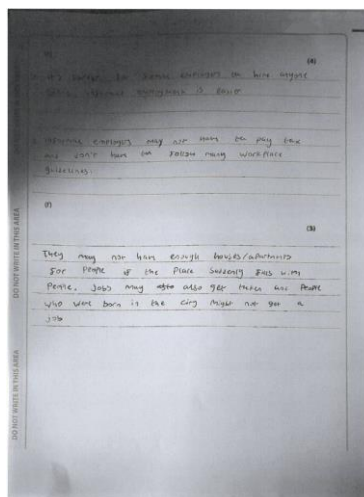 (4)
It's easier for informal employers to hire anyone
informal employment is easier
informal employers may not have to pay tax
and don't have to follow many workplace
guidelines.
(f)
(3)
They may not have enough houses/apartments
for people if the place suddenly fills with
people. Jobs may also get taken and people
who were born in the city might not get a
job
DO NOT WRITE IN THIS AREA
DO NOT WRITE IN THIS AREA